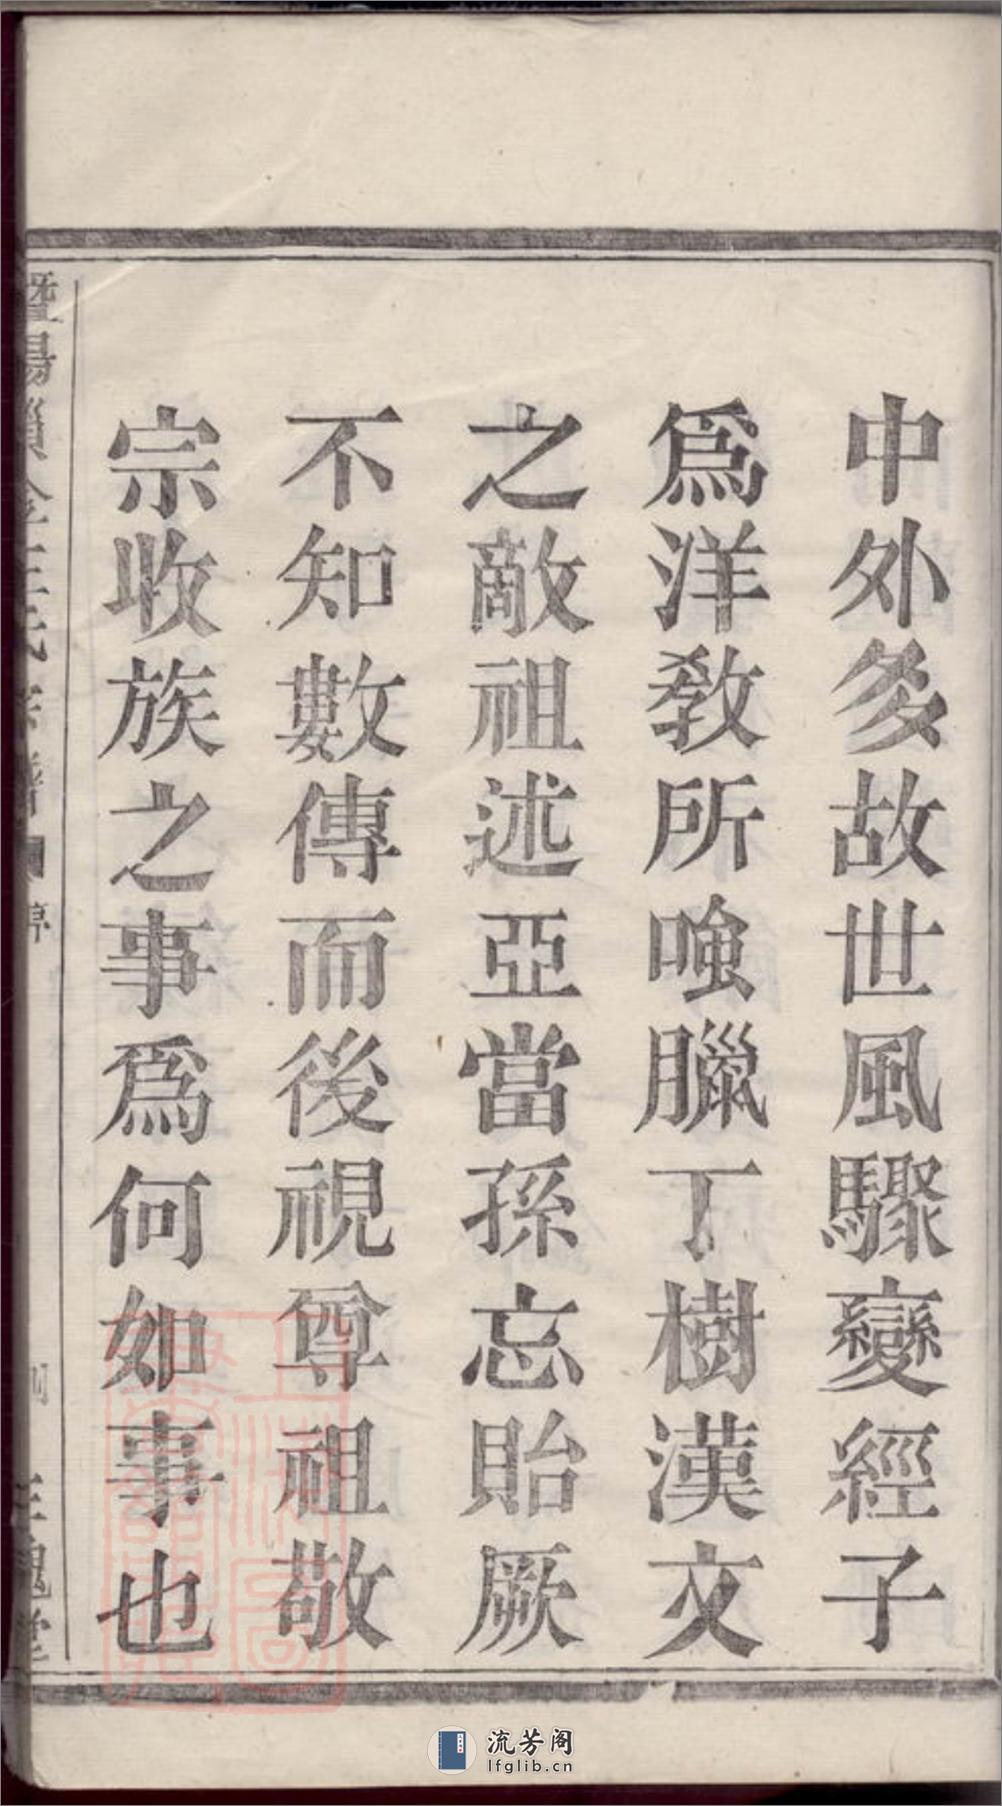 中外多故世風驟變經子
爲洋教所嗤臘丁樹漢文
之敵祖述亞當孫忘貽厥
不知數傳而後視尊祖敬
宗收族之事爲何如事也
流芳阁
lfglib.cn